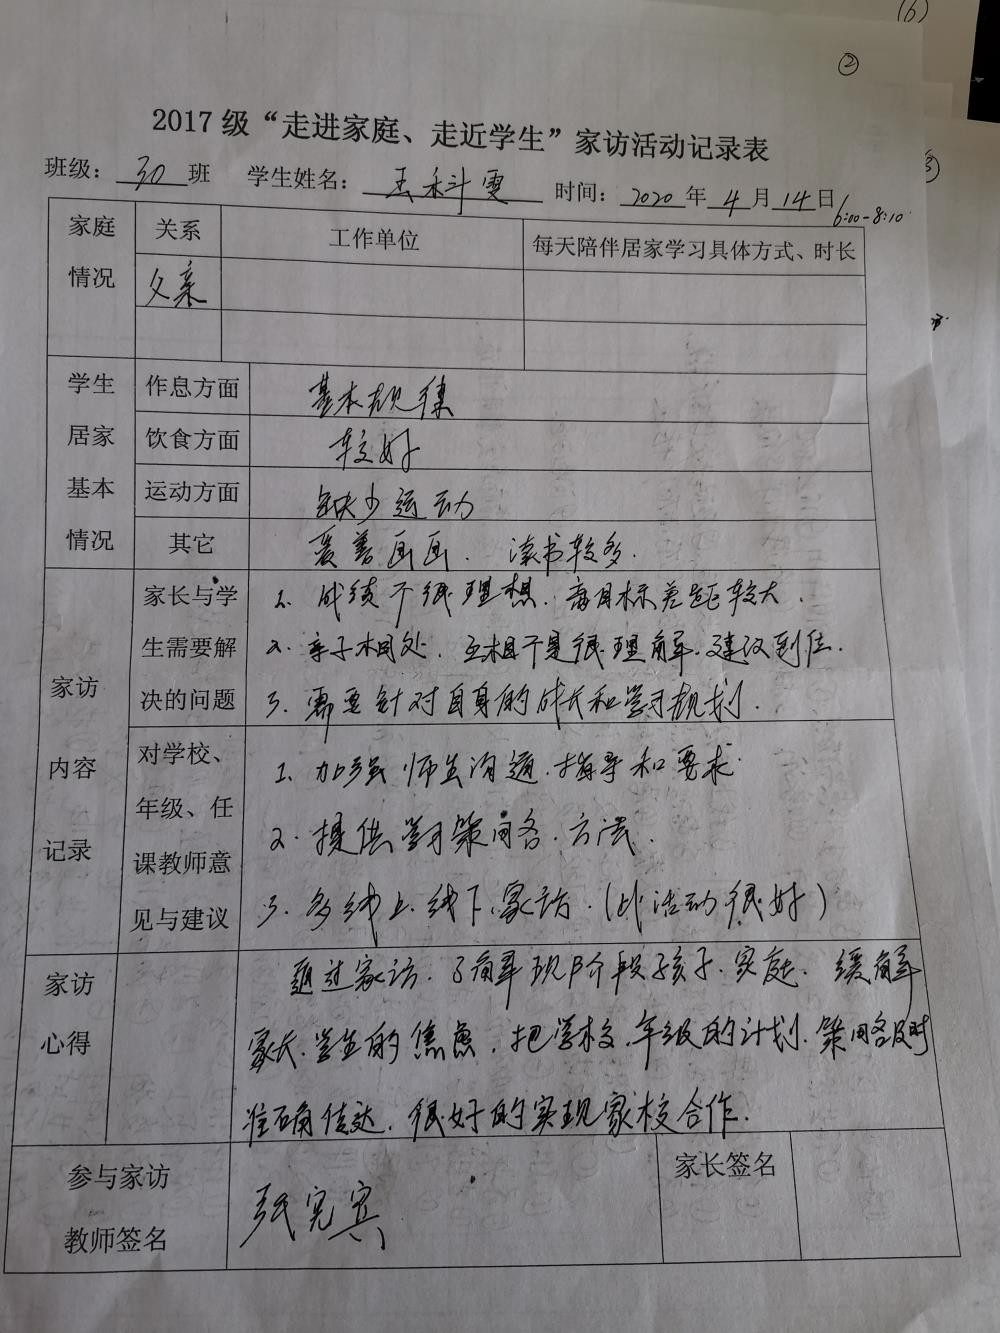 (6)
②
2017级“走进家庭、走近学生”家访活动记录表
班级：30班 学生姓名：王科雯 时间：2020年4月14日 6:00-8:10
家庭情况 关系 工作单位 每天陪伴居家学习具体方式、时长
父亲
学生居家基本情况 作息方面 基本规律
饮食方面 较好
运动方面 缺少运动
其它 爱善画画、读书较多.
家访内容记录
家长与学生需要解决的问题
1. 成绩不很理想、离目标差距较大.
2. 亲子相处、互相不是很理解、建议到位.
3. 需要针对自身的成长和学习规划.
对学校、年级、任课教师意见与建议
1. 加强师生沟通、指导和要求
2. 提供学习策略、方法.
3. 多线上、线下、家访.（此活动很好）
家访心得
通过家访、了解现阶段孩子、家庭、缓解
家长、学生的焦虑，把学校、年级的计划、策略及时
准确传达、很好的实现家校合作.
参与家访教师签名 张宪宾 家长签名
③